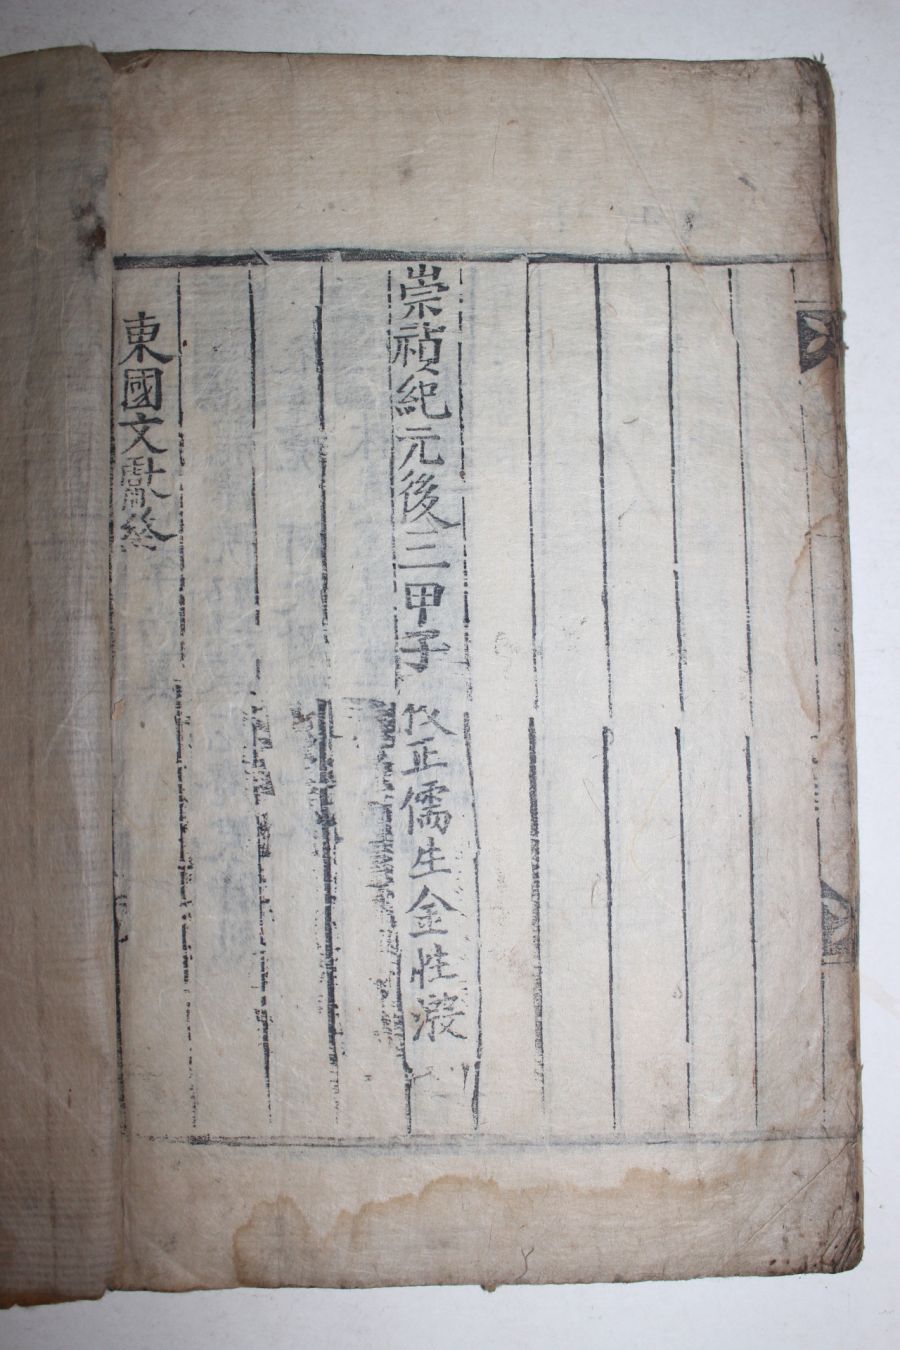 崇禎紀元後三甲子 攸正儒生金性潑
東國文獻終